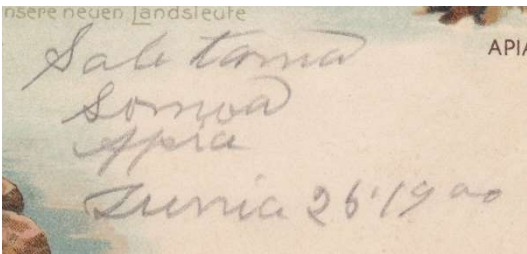 nsere neuen Landsleute
APIA
Sale tama
Somoa
Apia
Iunia 26 . 1900